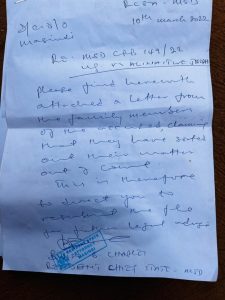 RCSA - MSD
10th march 2022
D/C.I.O
Masindi
RE: MSD CRB 149/22
Please find herewith
attached a letter from
the family members
of the accused, claiming
that they have settled
out their matter
out of court
This is therefore
to direct you to
resubmit the file
for further legal advice
CHIEF STATE - MSD